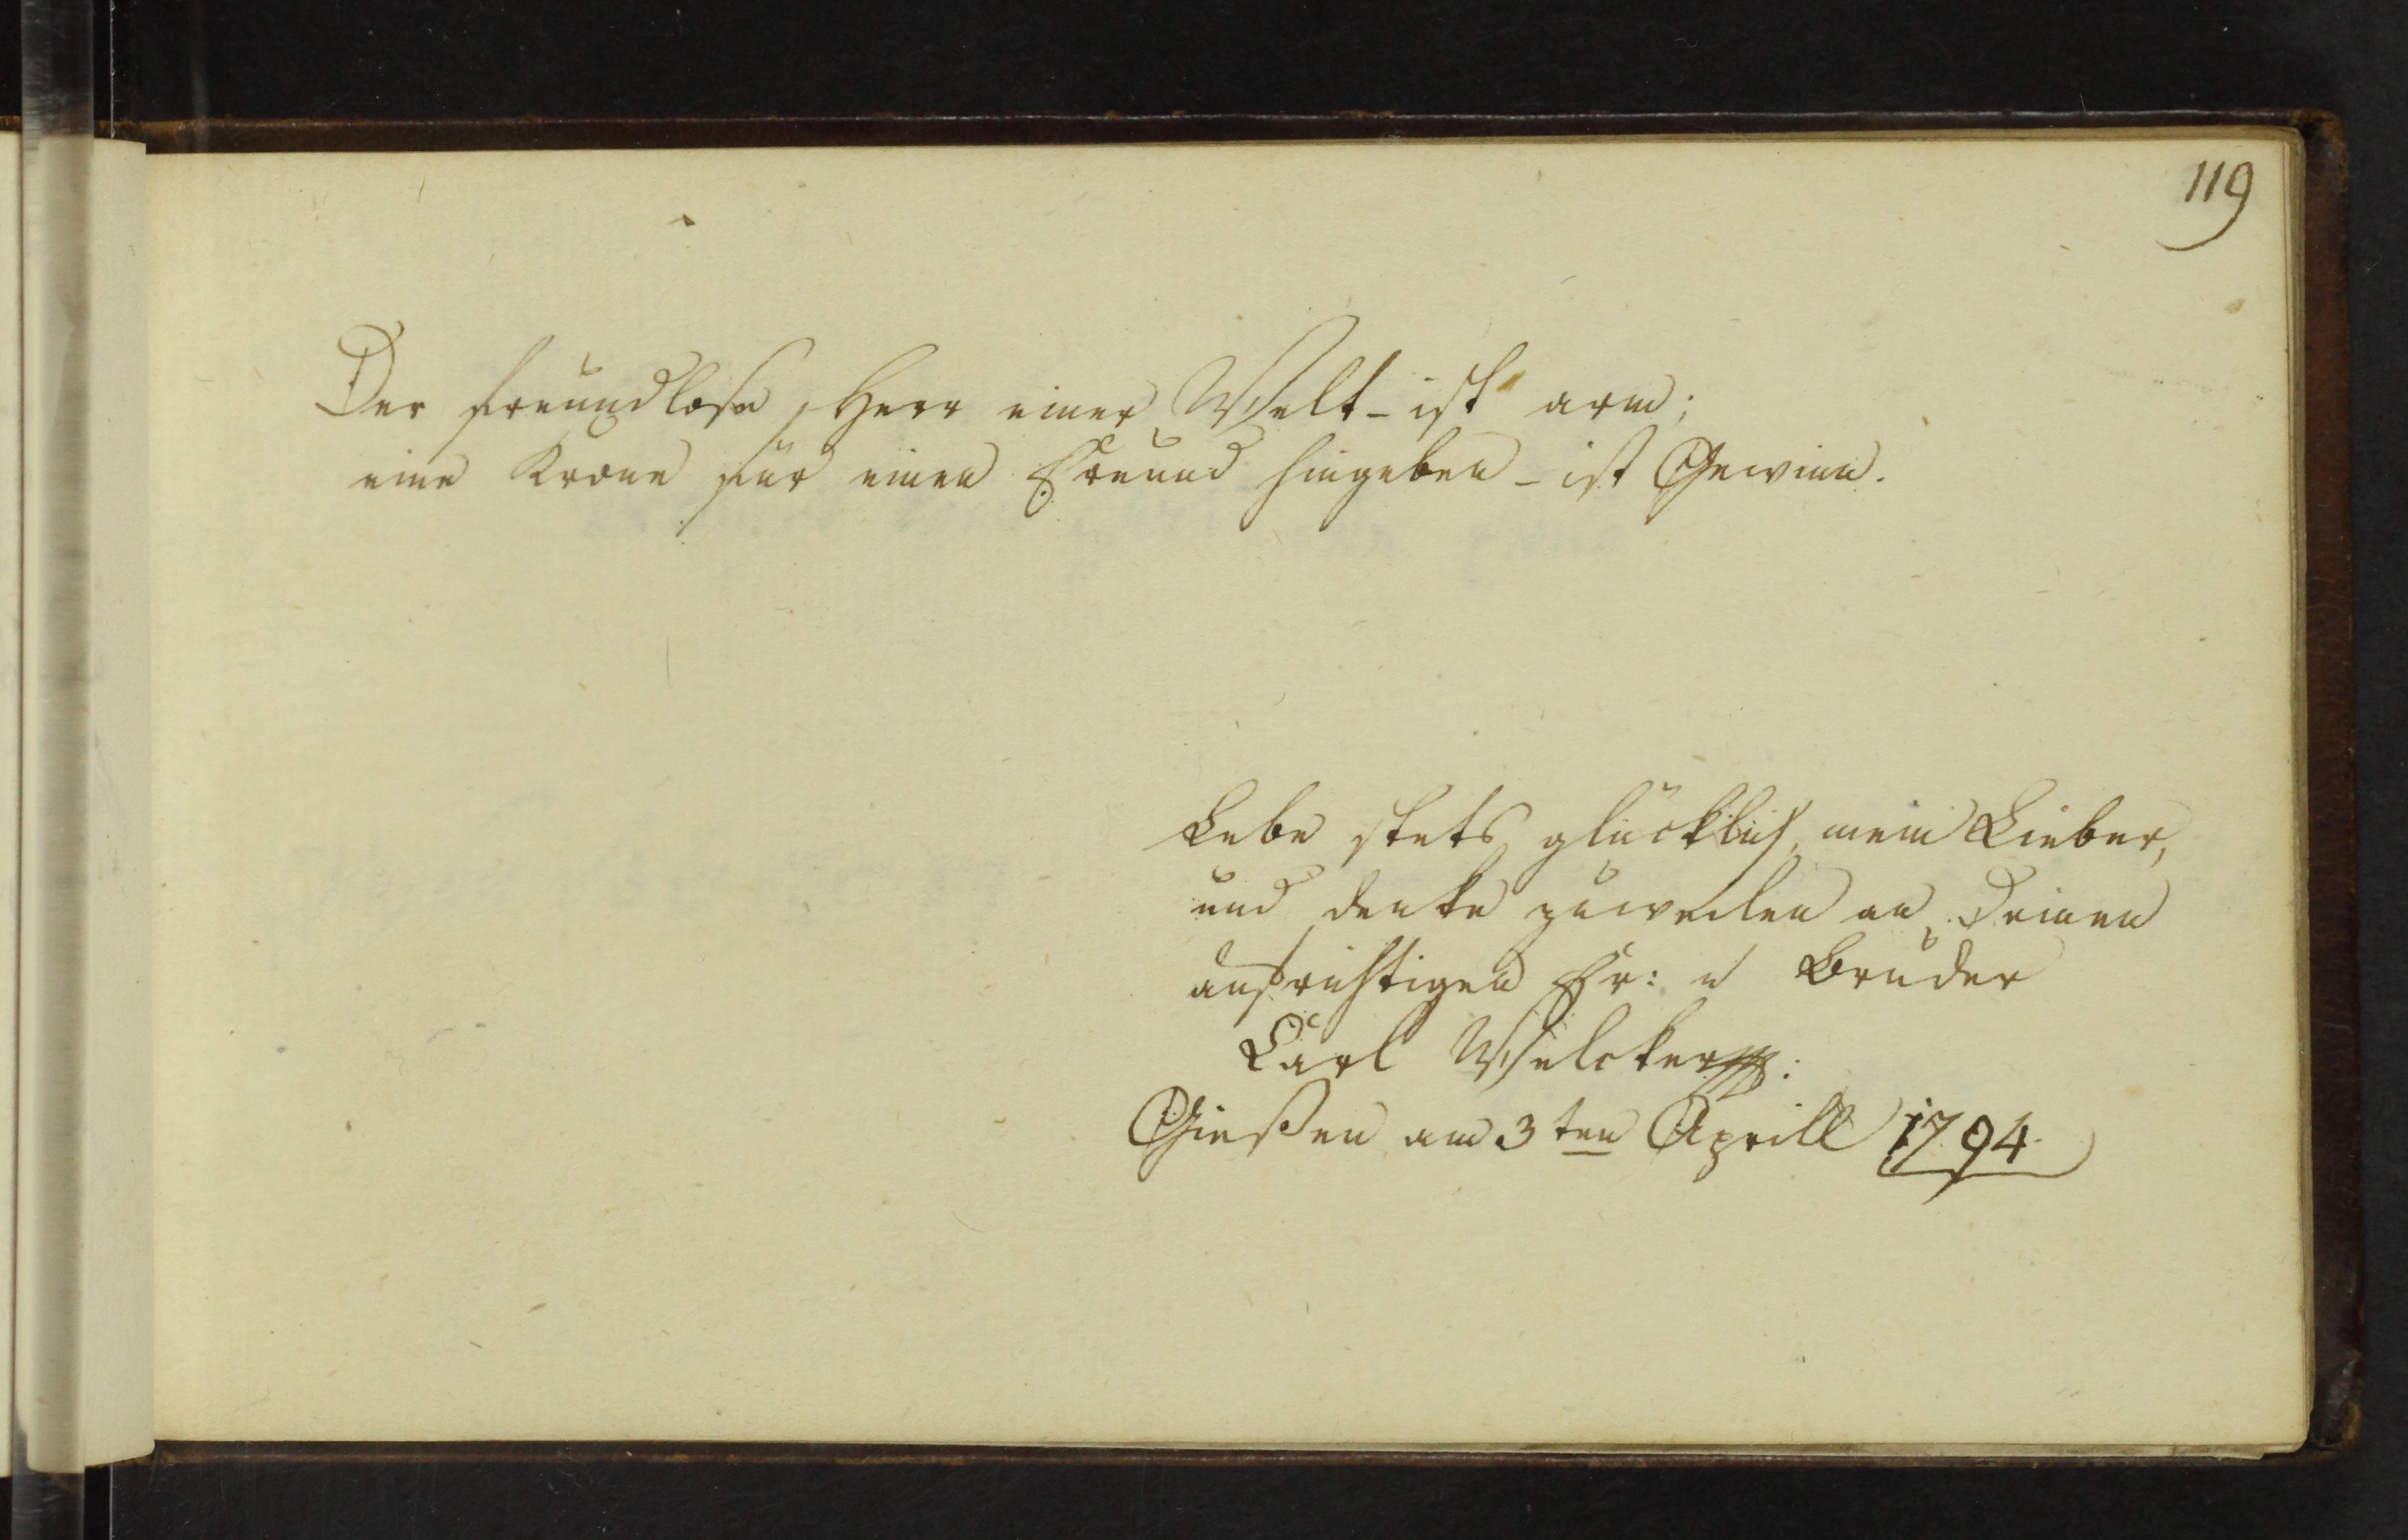 119
Der freundlose, Herr einer Welt - ist arm;
eine Krone für einen Freund hingeben - ist Gewinn.
Lebe stets glücklich, mein Lieber,
und denke zuweilen an Deinen
aufrichtigen Fr: u Bruder
Carl Welcker
Gießen am 3ten Aprill 1794.